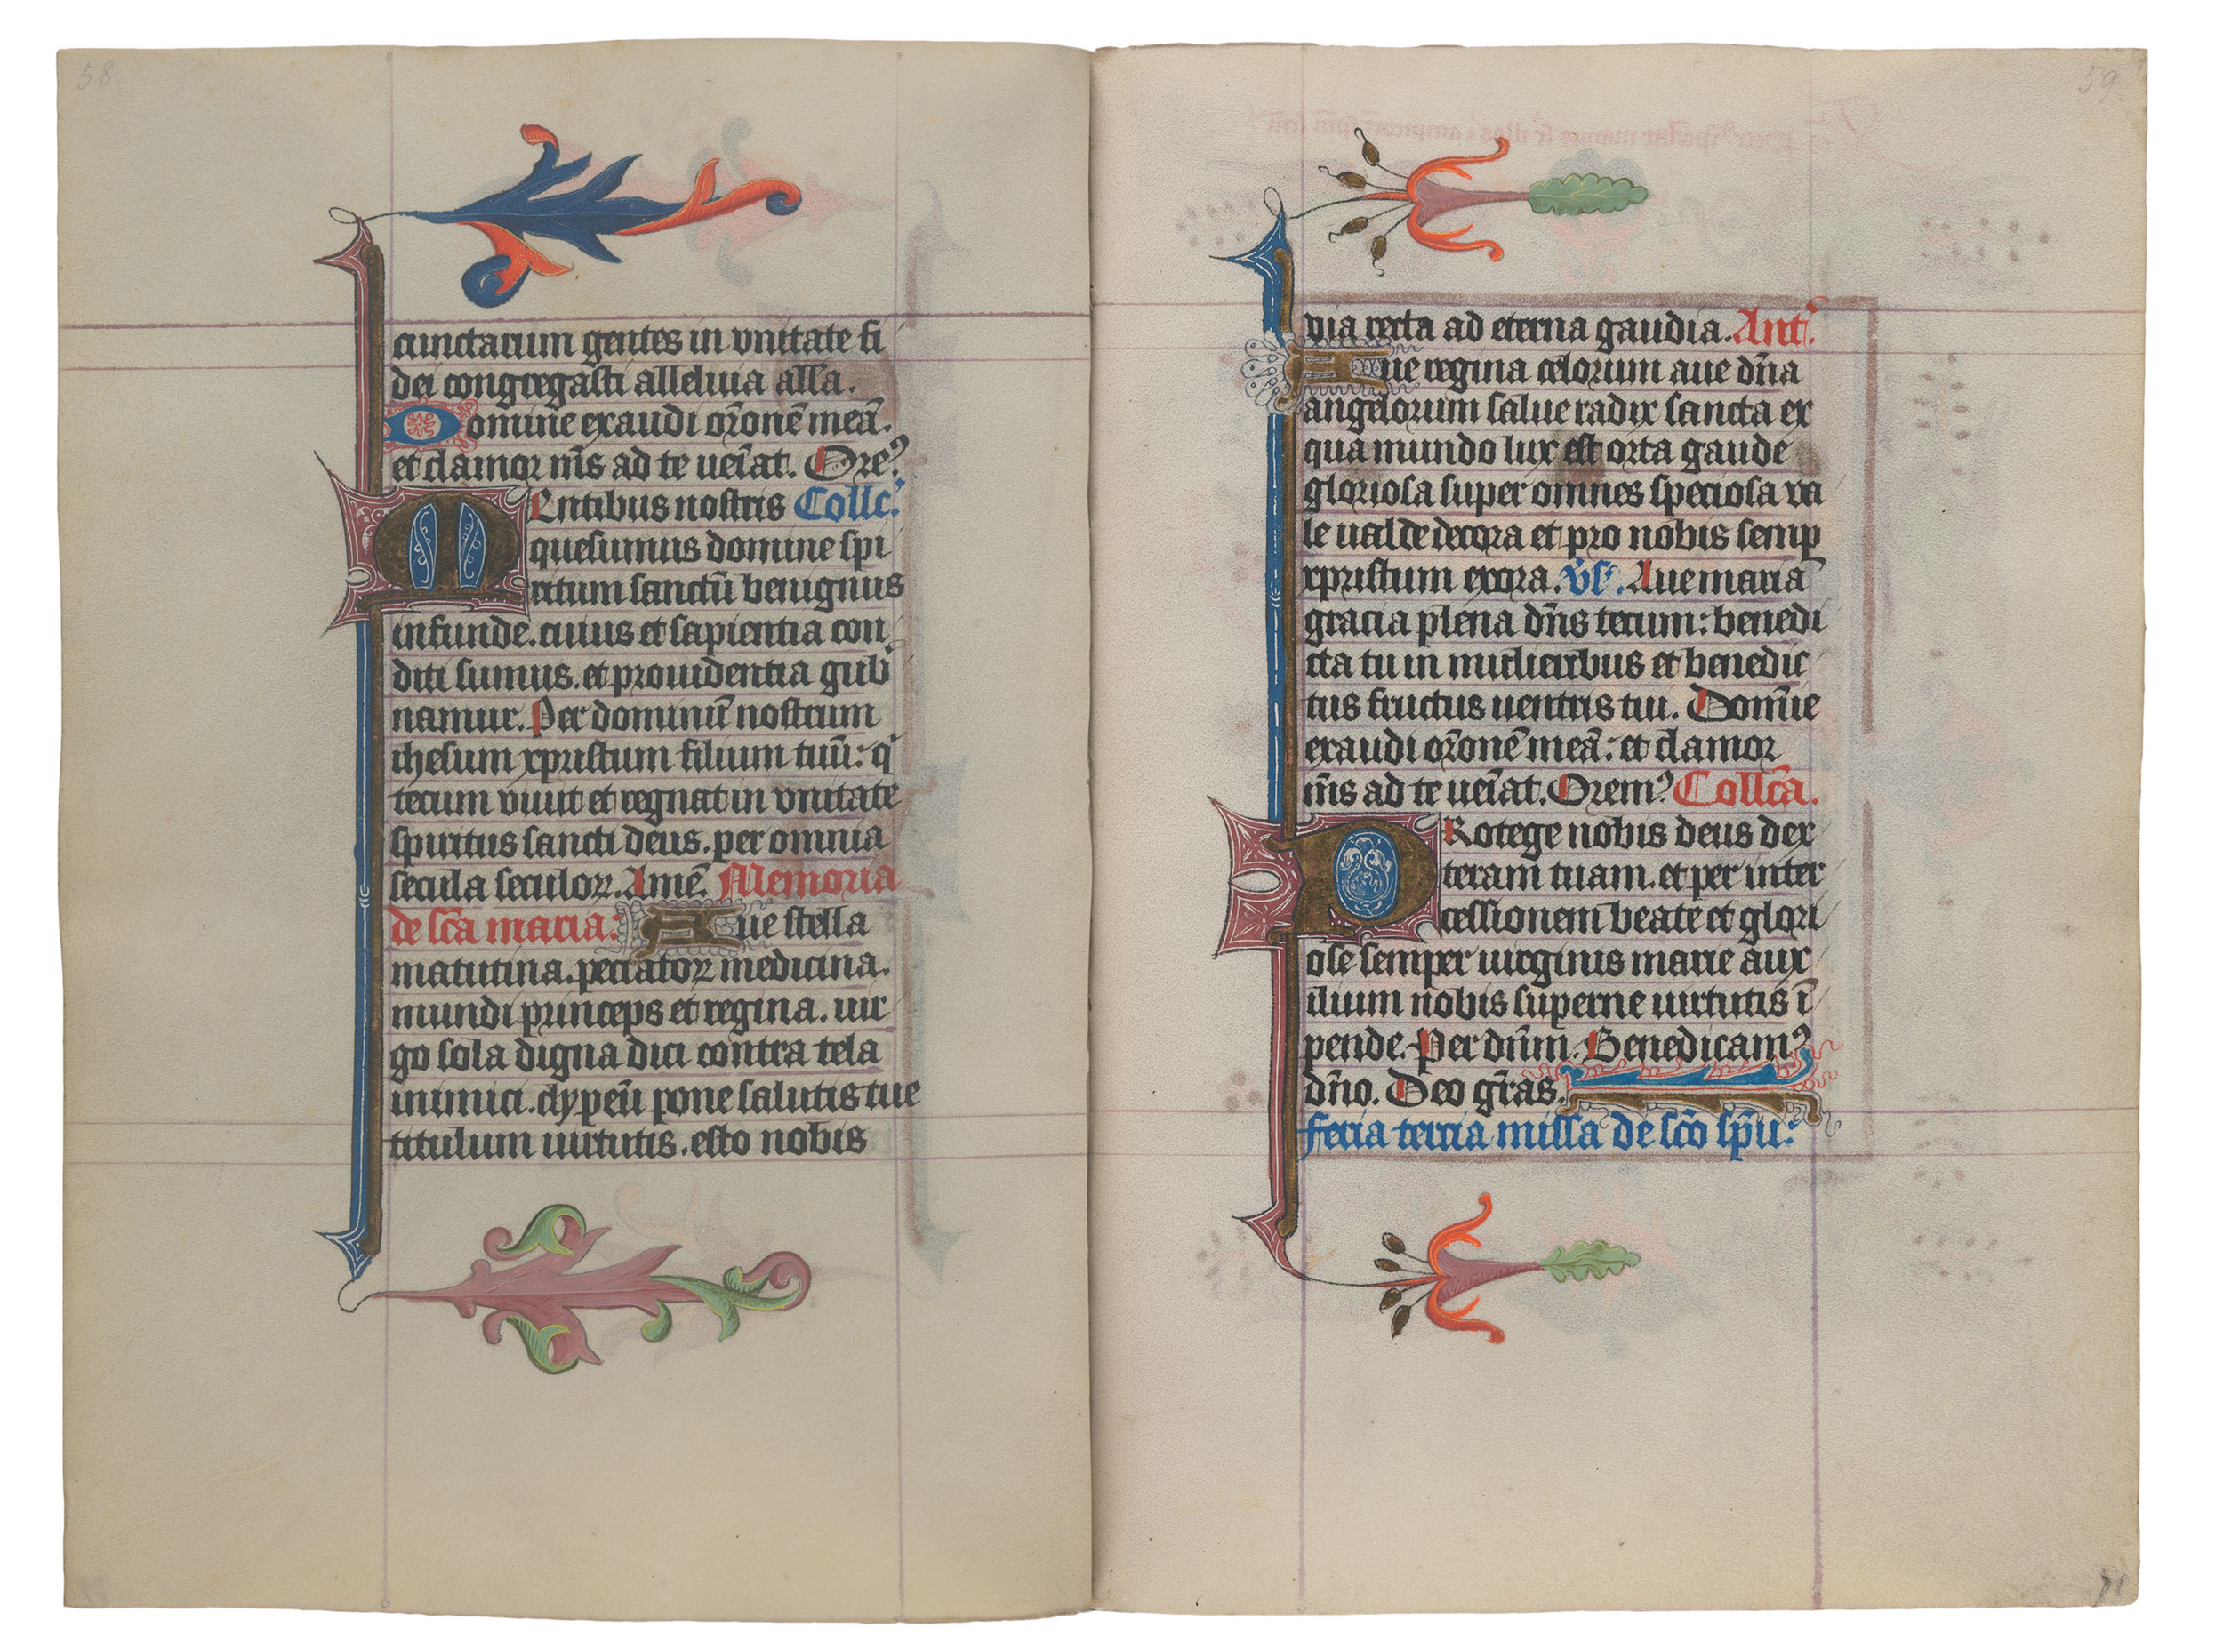 58
cunctarum gentes in vnitate fi
dei congregasti alleluia alla.
Domine exaudi or̄onē meā.
et clamor m̄s ad te ueīat. Ore⁹
MEntibus nostris Collc̄.
quesumus domine spi
ritum sanctū benignus
infunde. cuius et sapientia con
diti sumus. et prouidentia gub̄
namur. Per dominū nostrum
ihesum xpristum filium tuū: q
tecum viuit et regnat in vnitate
spiritus sancti deus. per omnia
secula seculoꝝ. Amē. Memoria
de sc̄a maria: Aue stella
matutina. peccatoꝝ medicina.
mundi princeps et regina. uir
go sola digna dici contra tela
inimici. clypeū pone salutis tue
titulum uirtutis. esto nobis
59
via recta ad eterna gaudia. Ant̄.
Aue regina celorum aue dn̄a
angelorum salue radix sancta ex
qua mundo lux est orta gaude
gloriosa super omnes speciosa va
le ualde decora et pro nobis semp
xpristum exora. vs̄. Aue maria
gracia plena dn̄s tecum: benedi
cta tu in mulieribus et benedic
tus fructus uentris tui. Domīe
exaudi or̄onē meā: et clamor
m̄s ad te ueīat. Orem⁹ Collc̄a.
PRotege nobis deus dex
teram tuam. et per inter
cessionem beate et glori
ose semper uirginis marie aux
ilium nobis superne uirtutis ī
pende. Per dn̄m. Benedicam⁹
dn̄o. Deo gr̄as.
feria tercia missa de sc̄o sp̄u: